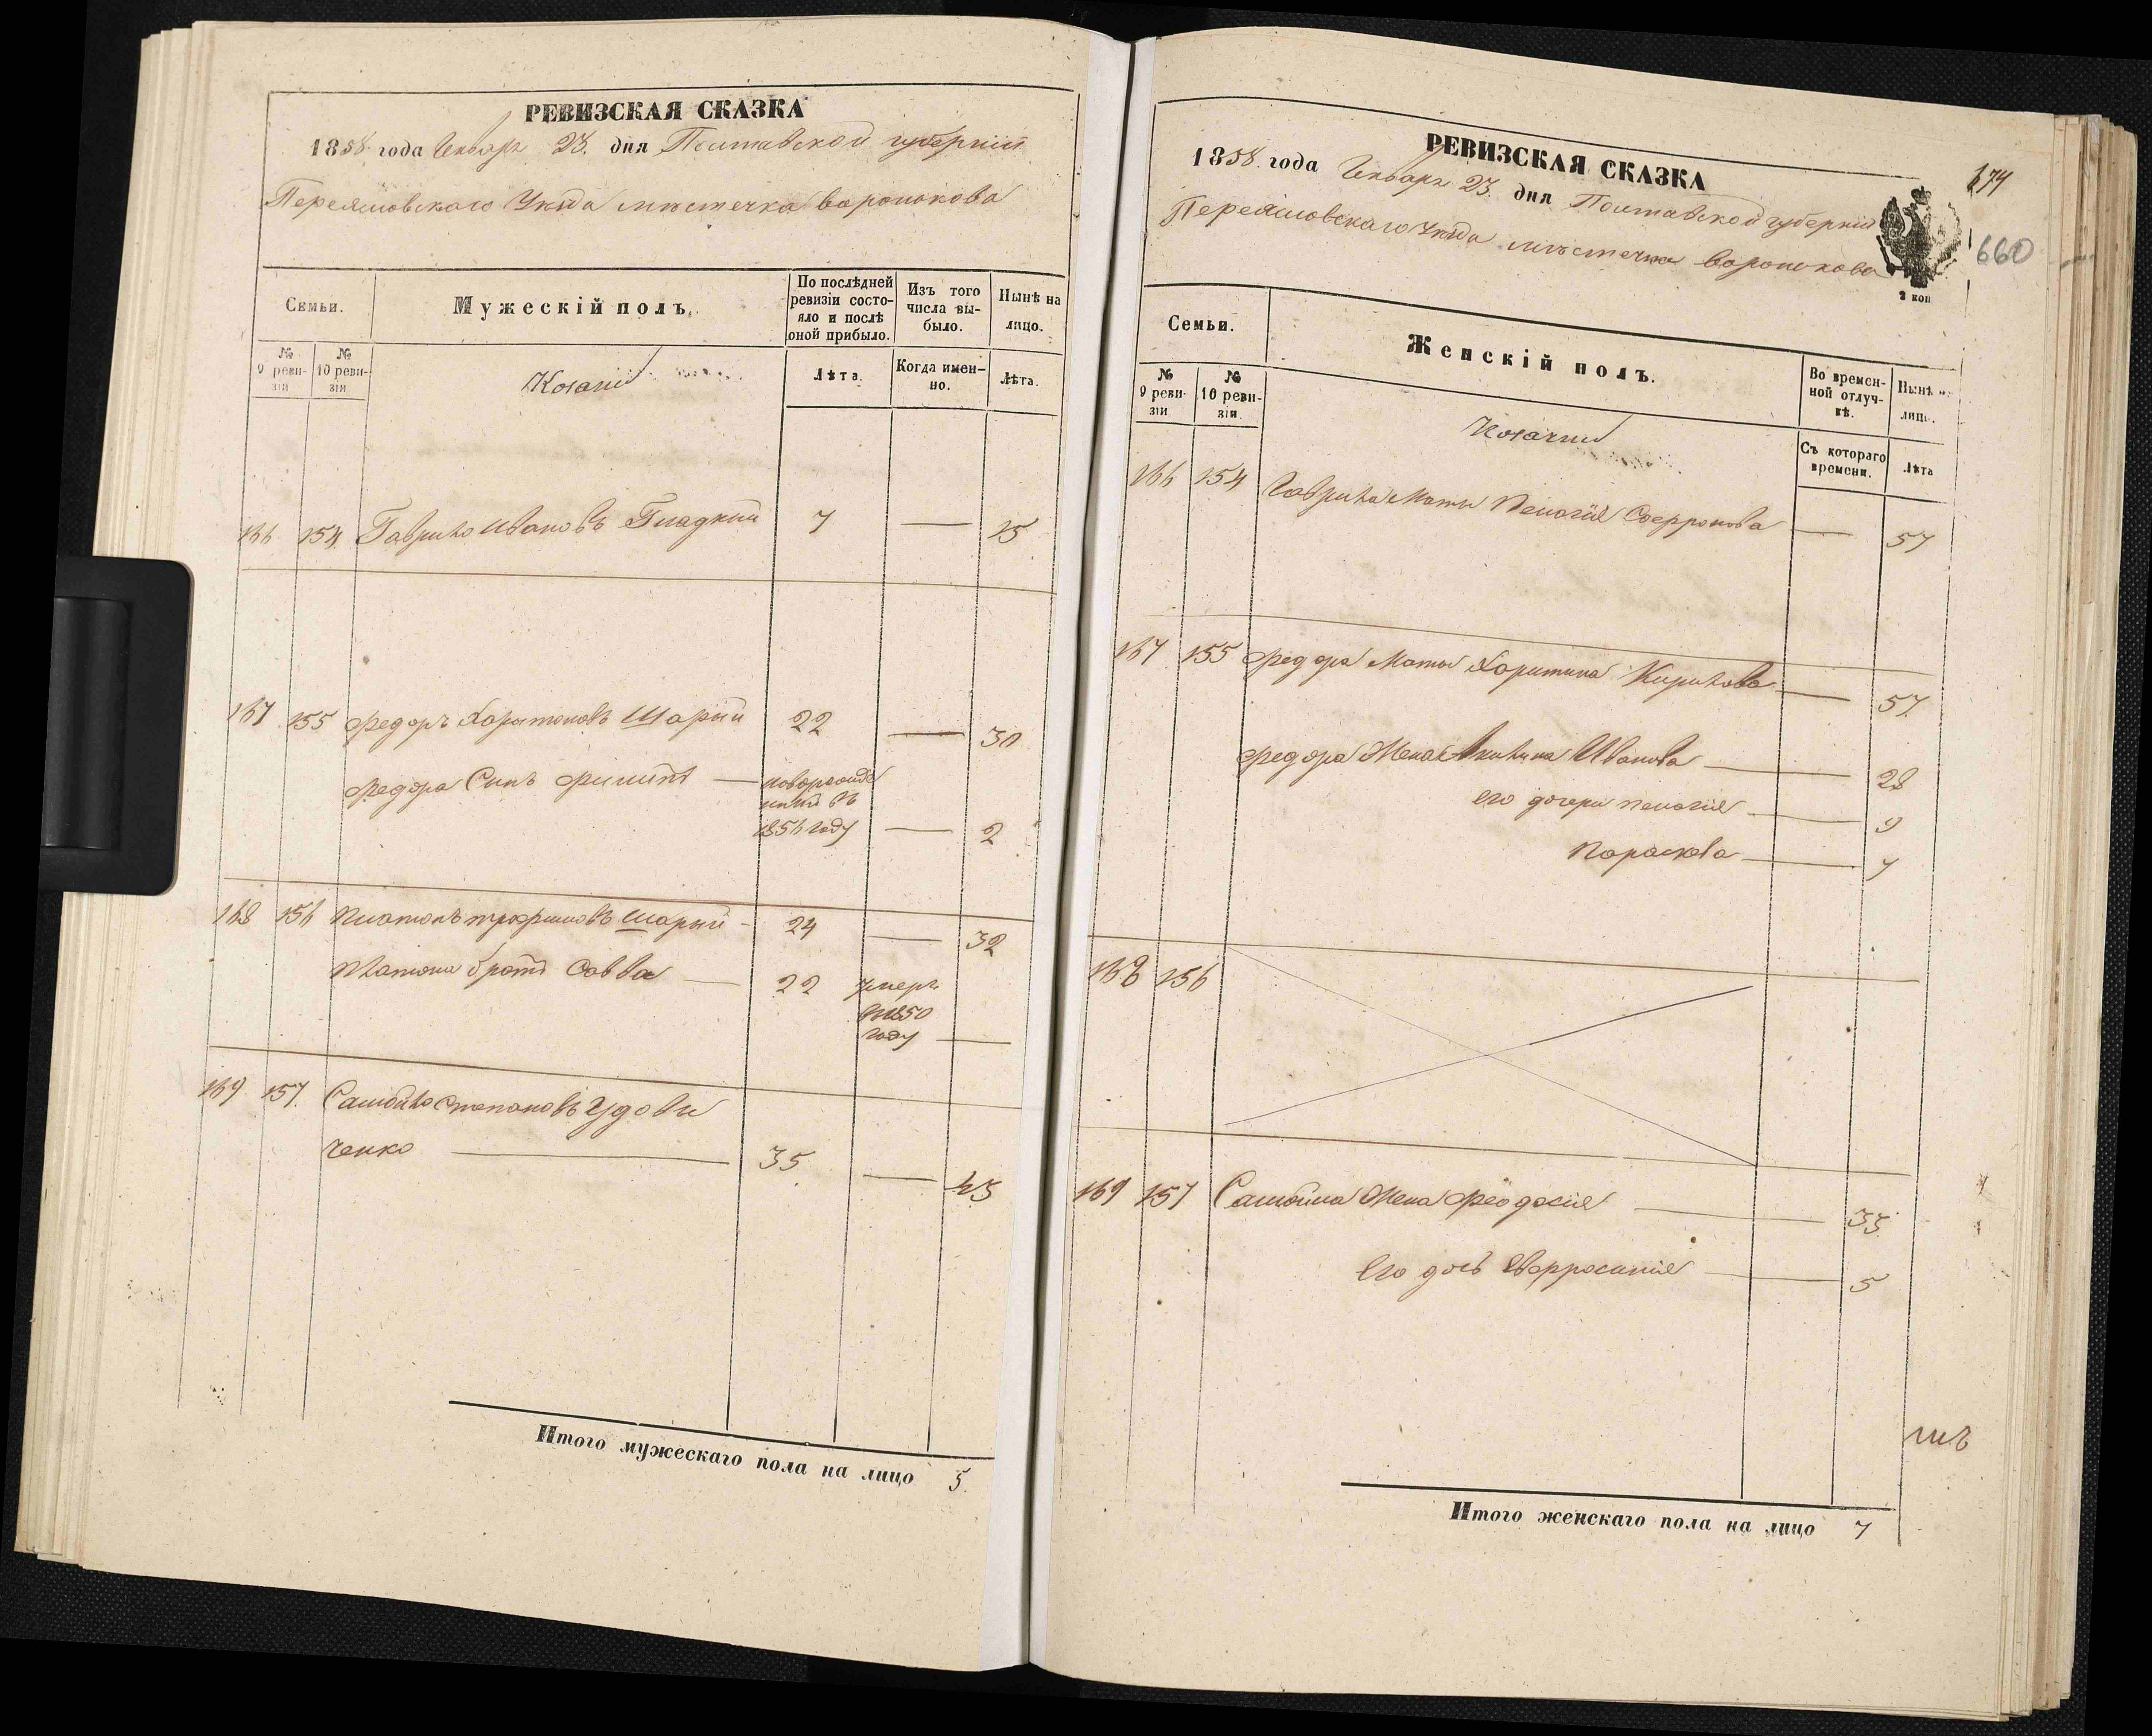 РЕВИЗСКАЯ СКАЗКА
1858 года Генваря 23. дня Полтавской губерніи
Переяславскаго Уѣзда мѣстечка Воронькова
Семьи.
Мужескій полъ.
По послѣдней ревизіи состояло и послѣ оной прибыло.
Изъ того числа выбыло.
Нынѣ на лицо.
№ 9 ревизіи
№ 10 ревизіи
Козаки
Лѣта.
Когда именно.
Лѣта.
166 154 Гаврило Ивановъ Гладкий 7 — 15
167 155 Федоръ Харитоновъ Шарый 22 — 30
Федора Сынъ Филипъ — новорожденный въ 1856 году — 2
168 156 Платонъ Трофимовъ Шарый - 24 — 32
Платона братъ Савва — 22 умеръ въ 1850 году —
169 157. Самойло Степановъ Удовиченко — 35 — 43
Итого мужескаго пола на лицо 5.
РЕВИЗСКАЯ СКАЗКА
174
1858. года Генваря 23. дня Полтавской губерніи
660
Переяславскаго Уѣзда мѣстечка Воронькова
2 коп
Семьи.
Женскій полъ.
Во временной отлучкѣ.
Нынѣ на лицо.
№ 9 ревизіи.
№ 10 ревизіи.
Козачки
Съ котораго времени.
Лѣта
166 154 Гаврила Мать Пелагія Софронова — 57
167 155 Федора Мать Харитина Кирилова — 57.
Федора Жена Акилина Иванова — 28
его дочери Пелагія — 9
Параскева — 7
168 156
169 157 Самойла Жена Феодосія — 33
Его дочь Евфросинія — 5
Итого женскаго пола на лицо 7